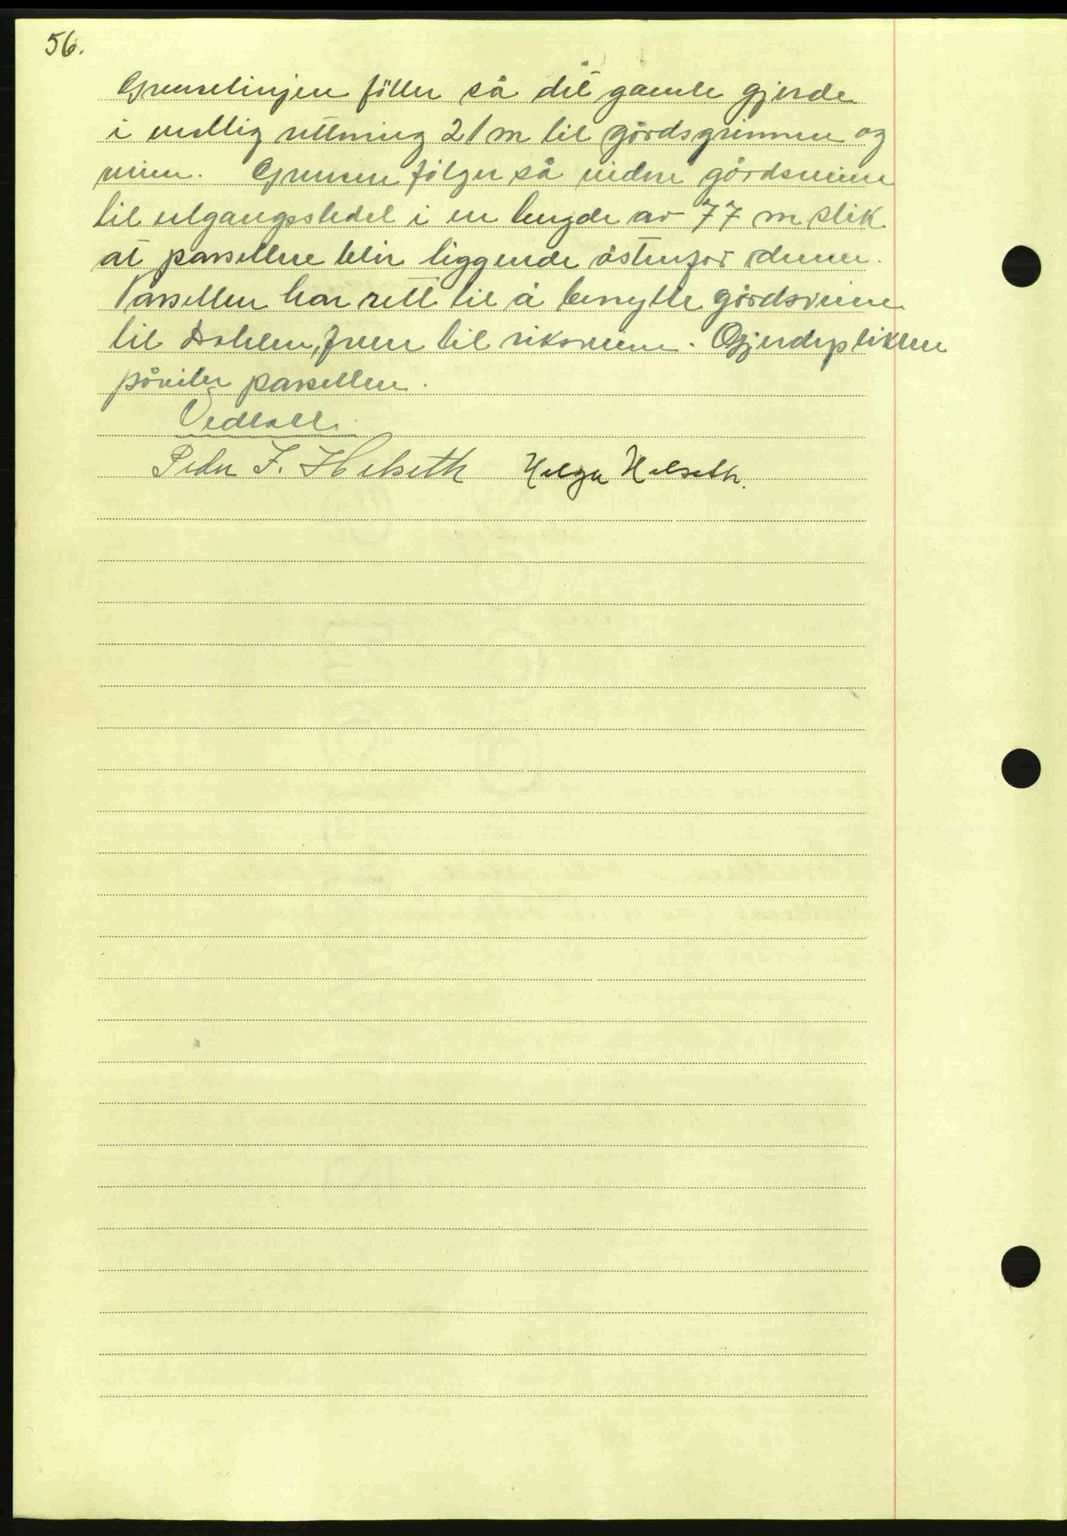 56.
Grenselinjen föller så det gamle gjerde
i vestlig rettning 21 m til gårdsgrinnen og
veien. Grensen följer så nedre gårdsveien
til utgangsstedet i en lengde av 77 m slik
at parsellene blir liggende östenfor denne.
Parsellen har rett til å benytte gårdsveien
til Dahlen, frem til riksveien. Gjerdeplikten
påviler parsellen.
Vedtatt.
Peder F. Helseth Helga Helseth.